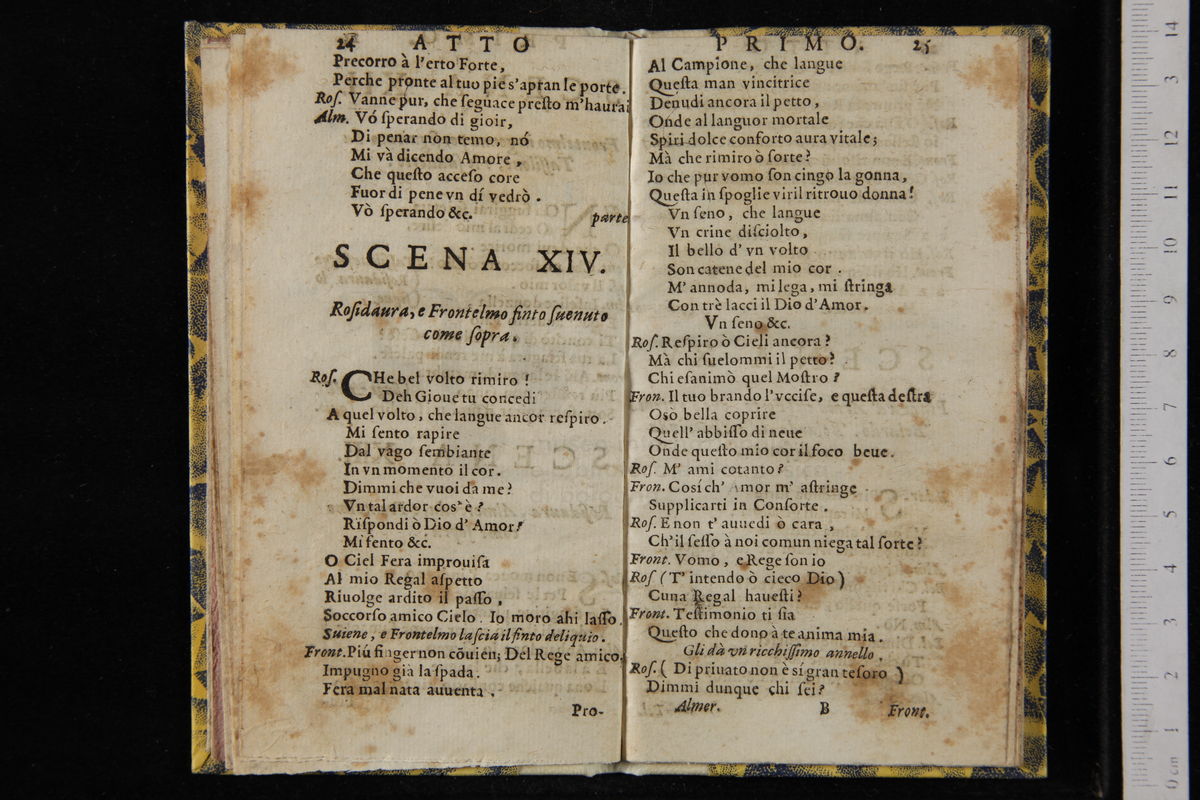 24 ATTO
Precorro à l'erto Forte,
Perche pronte al tuo piè s'apran le porte.
Roſ. Vanne pur, che ſeguace preſto m'haurai
Alm. Vó ſperando di gioir,
Di penar non temo, nó
Mi và dicendo Amore,
Che queſto acceſo core
Fuor di pene vn dí vedrò.
Vò ſperando &c. parte
SCENA XIV.
Roſidaura, e Frontelmo finto ſuenuto
come ſopra.
Roſ. CHe bel volto rimiro!
Deh Gioue tu concedi
A quel volto, che langue ancor reſpiro.
Mi ſento rapire
Dal vago ſembiante
In vn momento il cor.
Dimmi che vuoi da me?
Vn tal ardor cos' è?
Riſpondi ò Dio d' Amor?
Mi ſento &c.
O Ciel Fera improuiſa
Al mio Regal aſpetto
Riuolge ardito il paſſo,
Soccorſo amico Cielo. Io moro ahi laſſo.
Suiene, e Frontelmo laſcia il finto deliquio.
Front. Piú finger non cõuien; Del Rege amico
Impugno già la ſpada.
Fera mal nata auuenta,
Pro-
PRIMO. 25
Al Campione, che langue
Queſta man vincitrice
Denudi ancora il petto,
Onde al languor mortale
Spiri dolce conforto aura vitale;
Mà che rimiro ò ſorte?
Io che pur vomo ſon cingo la gonna,
Queſta in ſpoglie viril ritrouo donna!
Vn ſeno, che langue
Vn crine diſciolto,
Il bello d' vn volto
Son catene del mio cor.
M' annoda, mi lega, mi ſtringa
Con trè lacci il Dio d'Amor.
Vn ſeno &c.
Roſ. Reſpiro ò Cieli ancora?
Mà chi ſuelommi il petto?
Chi eſanimò quel Moſtro?
Fron. Il tuo brando l'vcciſe, e queſta deſtra
Osò bella coprire
Quell' abbiſſo di neue
Onde queſto mio cor il foco beue.
Roſ. M' ami cotanto?
Fron. Cosí ch' Amor m' aſtringe
Supplicarti in Conſorte.
Roſ. E non t' auuedi ò cara,
Ch'il ſeſſo à noi comun niega tal ſorte?
Front. Vomo, e Rege ſon io
Roſ (T' intendo ò cieco Dio)
Cuna Regal haueſti?
Front. Teſtimonio ti ſia
Queſto che dono à te anima mia.
Gli dà vn ricchiſſimo annello.
Roſ. ( Di priuato non è sí gran teſoro )
Dimmi dunque chi ſei?
Almer. B Front.